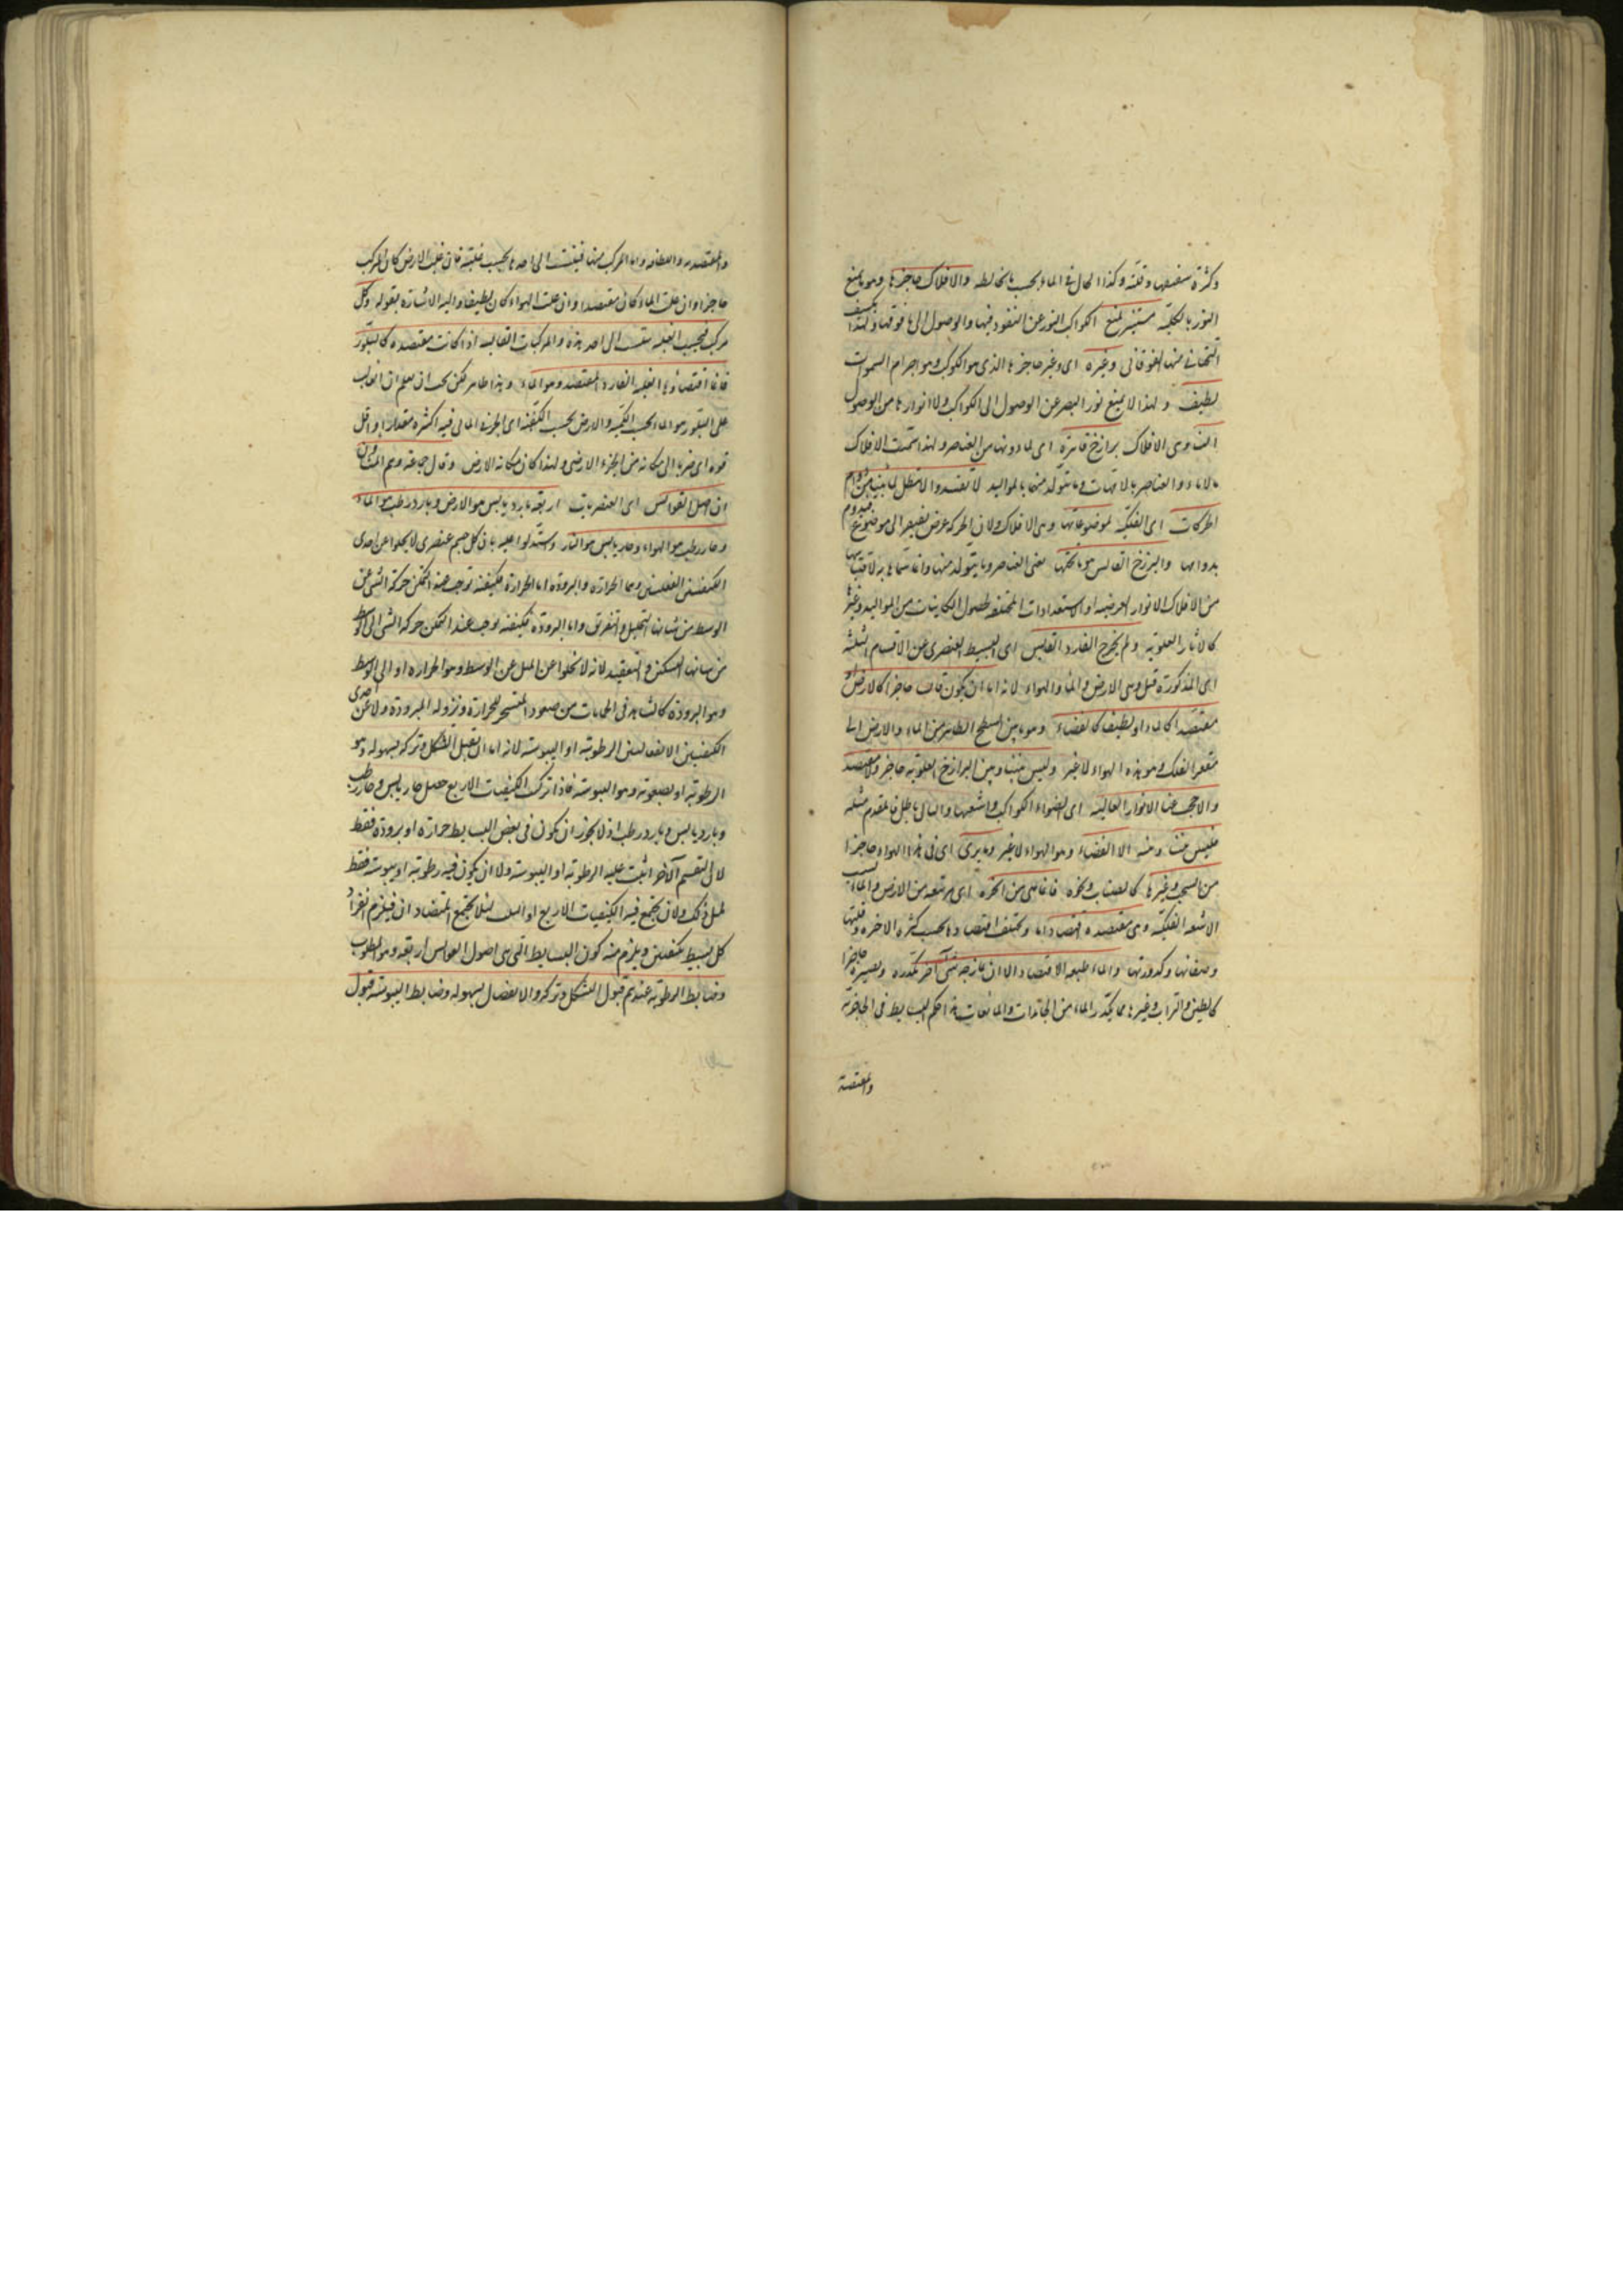 وكثرة سفيفها وقلته وكذا الحال في الماء بحسب ما يخالطه والافلاك حاجزها وهو ما يمنع
النور بالكلية مستنير لمنع الكواكب النور عن النفوذ فيها والوصول الى ما فوقها ولهذا يكسف
التحتاني منها الفوقاني وغيره اى وغير حاجزها الذى هو الكوكب وهو اجرام السموات
لطيف ولهذا لا يمنع نور البصر عن الوصول الى الكواكب ولا انوارها من الوصول
الينا وهى الافلاك برازخ قاهرة اى لما دونها من العناصر ولهذا سميت الافلاك
بالاباء والعناصر بالامهات وما يتولد منها بالمواليد لا تفسد والا تبطل
الحركات اى الفلكية لموضوعاتها وهى الافلاك ولان الحركة عرض يفتقر الى موضوع يدوم
بدوامها والبرزخ القابس هو ما تحتها يعنى العناصر وما يتولد منها وانما سماها به لاقتباسها
من الافلاك الانوار العرضية او الاستعدادات المختلفة لحصول الكاينات من المواليد وغيرها
كالاثار العلوية ولم يخرج الفارد القابس اى البسيط العنصرى عن الاقسام الثلثة
اى المذكورة قبل وهى الارض والماء والهواء لانه اما ان يكون قابسا حاجزا كالارض او
مقتصدا كالماء او لطيفا كالفضاء وهو ما بين السطح الظاهر من الماء والارض الى
مقعر الفلك وهو هذه الهواء لا غير وليس بيننا وبين البرازخ العلوية حاجز ولا مقتصد
والا حجب عنا الانوار العالية اى اضواء الكواكب واشعتها والتالى باطل فالمقدم مثله
فليس بيننا وبينه الا الفضاء وهو الهواء لا غير وما يرى اى فى هذا الهواء حاجزا
من السحب وغيرها كالضباب ونحوه فانما هى من ابخرة اى مرتفعة من الارض والماء بسبب
الاشعة الفلكية وهى مقتصدة اقتصادا ما ويختلف اقتصادها بحسب كثرة الابخرة وقلتها
وصفائها وكدورتها والماء طبعه الاقتصاد الا ان مازجه شئ آخر يكدره ويصيره حاجزا
كالطين والتراب وغيرها مما يكدر الماء من الجامدات والمائعات هذا حكم البسايط فى الحاجزية
والمقتصدية
والمقتصدية واللطافة واما المركب منها فينسب الى احدها بحسب غلبته فان غلب الارض كان المركب
حاجزا وان غلب الماء كان مقتصدا وان غلب الهواء كان لطيفا واليه الاشارة بقوله وكل
مركب فبحسب الغلبة ينسب الى احد هذه والمركبات القابسة اذا كانت مقتصدة كالبلور
فانما اقتصادها لغلبة الفارد المقتصد وهو الماء وهذا ظاهر لكن يجب ان يعلم ان الغالب
على البلور هو الماء بحسب الكمية والارض بحسب الكيفية اى الجزء المائى فيه اكثره مقدارا واقل
قوة اى ميزا الى مكانه من الجزء الارضى ولهذا كان مكانه الارض وقال جماعة وهم المشاؤن
ان اصل القوابس اى العنصريات اربعة بارد يابس هو الارض وبارد رطب هو الماء
وحار رطب هو الهواء وحار يابس هو النار واستدلوا عليه بان كل جسم عنصرى لا يخلوا عن احدى
الكيفيتين الفعليتين وهما الحرارة والبرودة اما الحرارة فكيفية توجب عند التمكن حركة الشئ عن
الوسط من شانها التحليل والتفريق واما البرودة فكيفية توجب عند التمكن حركة الشئ الى الوسط
من شانها التسكين والتعقيد لانه لا يخلوا عن الميل عن الوسط وهو الحرارة او الى الوسط
وهو البرودة كالشاهد فى الحمامات من صعود المتسخن للحرارة ونزوله للبرودة ولا عن احدى
الكيفيتين الانفعاليتين الرطوبة او اليبوسة لانه اما ان يقبل الشكل وتركه بسهولة وهو
الرطوبة او بصعوبة وهو اليبوسة فاذا تركبت الكيفيات الاربع حصل حار يابس وحار رطب
وبارد يابس وبارد رطب اذ لا يجوز ان يكون فى بعض البسايط حرارة او برودة فقط
لان التقسيم الاخر اثبت عليه الرطوبة او اليبوسة ولا ان يكون فيه رطوبة او يبوسة فقط
لمثل ذلك ولا ان يجتمع فيه الكيفيات الاربع او الثلث لئلا يجتمع المتضادان فيلزم انفراد
كل بسيط بكيفيتين ويلزم منه كون البسايط التى هى اصول القوابس اربعة وهو المطلوب
وضابط الرطوبة عندهم قبول التشكل وتركه والاتصال بسهولة وضابط اليبوسة قبول